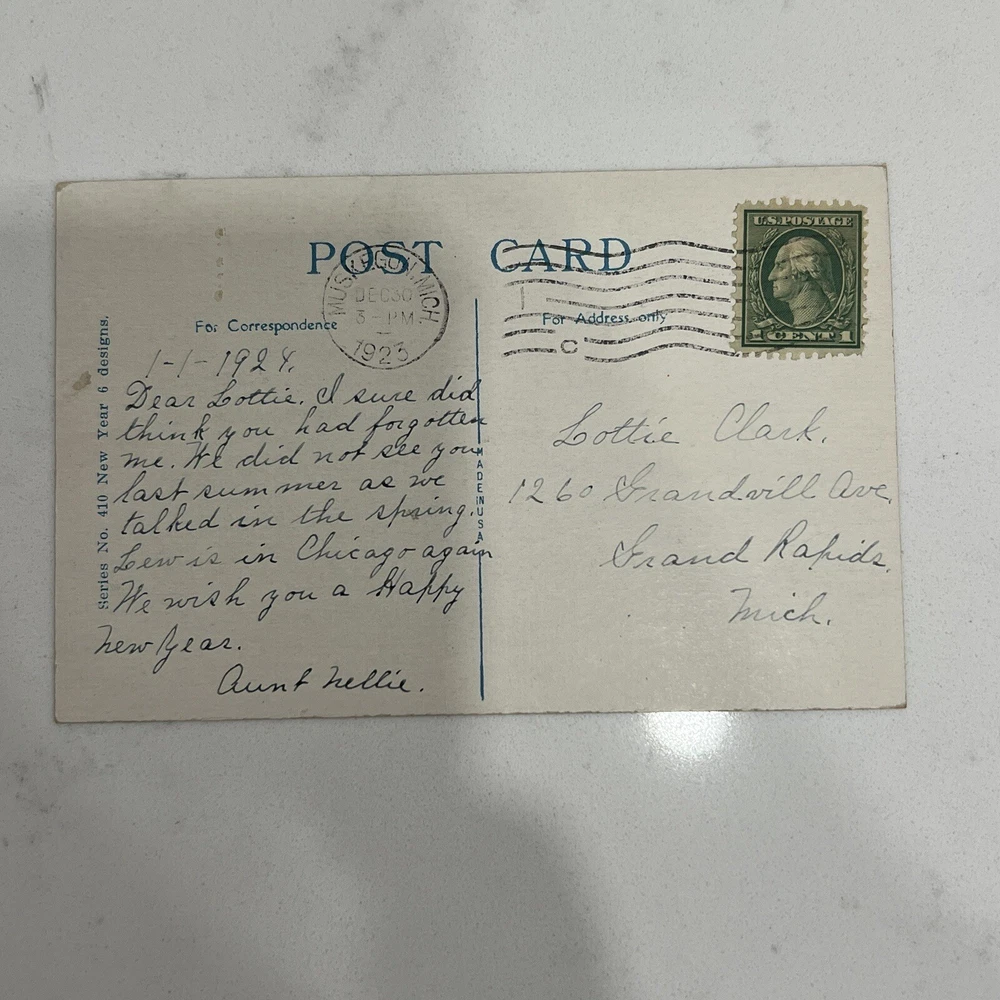 POST CARD
U.S. POSTAGE
1 CENT 1
MUSKEGON, MICH.
DEC 30
3 - PM
1923
C
For Correspondence
For Address only
Series No. 410 New Year 6 designs.
MADE IN USA
1-1-1924.
Dear Lottie. I sure did
think you had forgotten
me. We did not see you
last summer as we
talked in the spring.
Lew is in Chicago again
We wish you a Happy
New Year.
Aunt Nellie.
Lottie Clark.
1260 Grandvill Ave.
Grand Rapids.
Mich.